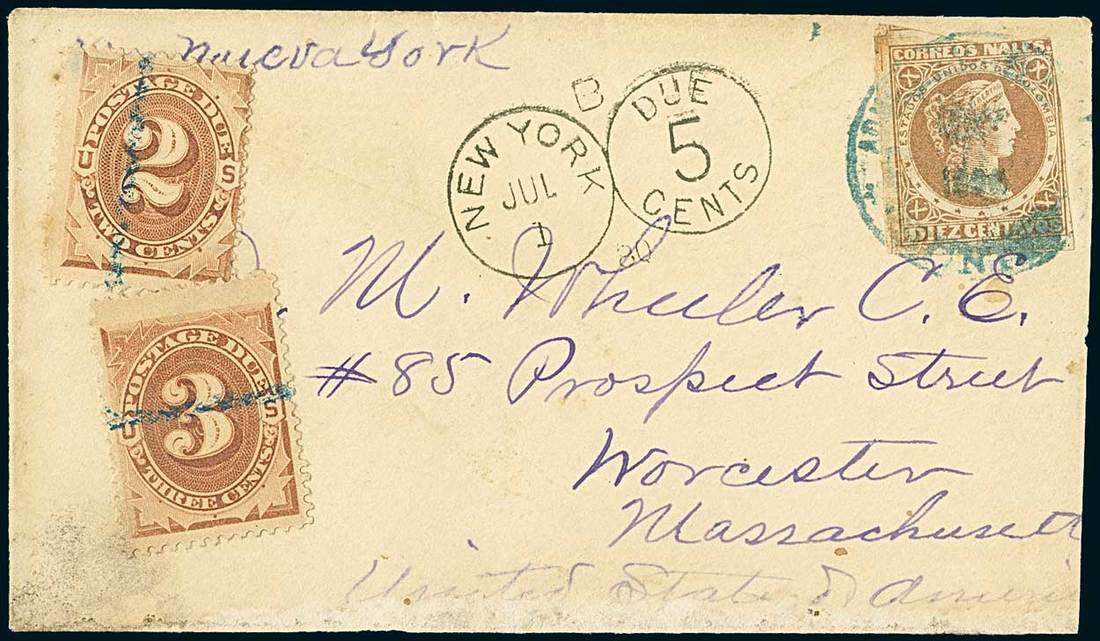 Nueva York
U POSTAGE DUE S
2
TWO CENTS
U POSTAGE DUE S
3
THREE CENTS
NEW YORK
JUL
1
80
B
DUE
5
CENTS
CORREOS NALES.
ESTADOS UNIDOS DE COLOMBIA
DIEZ CENTAVOS
M. Wheeler C. E.
#85 Prospect Street
Worcester
Massachusett
United State d Ameri